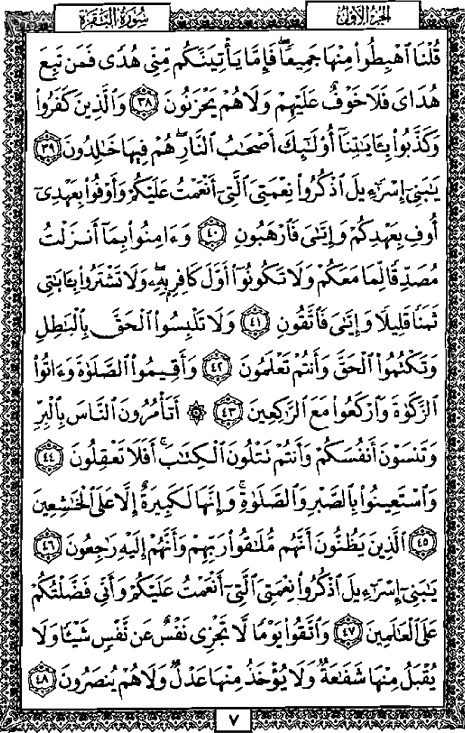 الجزء الأول سورة البقرة
قُلْنَا ٱهْبِطُوا۟ مِنْهَا جَمِيعًۭا ۖ فَإِمَّا يَأْتِيَنَّكُم مِّنِّى هُدًۭى فَمَن تَبِعَ
هُدَاىَ فَلَا خَوْفٌ عَلَيْهِمْ وَلَا هُمْ يَحْزَنُونَ ٣٨ وَٱلَّذِينَ كَفَرُوا۟
وَكَذَّبُوا۟ بِـَٔايَـٰتِنَآ أُو۟لَـٰٓئِكَ أَصْحَـٰبُ ٱلنَّارِ ۖ هُمْ فِيهَا خَـٰلِدُونَ ٣٩
يَـٰبَنِىٓ إِسْرَٰٓءِيلَ ٱذْكُرُوا۟ نِعْمَتِىَ ٱلَّتِىٓ أَنْعَمْتُ عَلَيْكُمْ وَأَوْفُوا۟ بِعَهْدِىٓ
أُوفِ بِعَهْدِكُمْ وَإِيَّـٰىَ فَٱرْهَبُونِ ٤٠ وَءَامِنُوا۟ بِمَآ أَنزَلْتُ
مُصَدِّقًۭا لِّمَا مَعَكُمْ وَلَا تَكُونُوٓا۟ أَوَّلَ كَافِرٍۭ بِهِۦ ۖ وَلَا تَشْتَرُوا۟ بِـَٔايَـٰتِى
ثَمَنًۭا قَلِيلًۭا وَإِيَّـٰىَ فَٱتَّقُونِ ٤١ وَلَا تَلْبِسُوا۟ ٱلْحَقَّ بِٱلْبَـٰطِلِ
وَتَكْتُمُوا۟ ٱلْحَقَّ وَأَنتُمْ تَعْلَمُونَ ٤٢ وَأَقِيمُوا۟ ٱلصَّلَوٰةَ وَءَاتُوا۟
ٱلزَّكَوٰةَ وَٱرْكَعُوا۟ مَعَ ٱلرَّٰكِعِينَ ٤٣ ۞ أَتَأْمُرُونَ ٱلنَّاسَ بِٱلْبِرِّ
وَتَنسَوْنَ أَنفُسَكُمْ وَأَنتُمْ تَتْلُونَ ٱلْكِتَـٰبَ ۚ أَفَلَا تَعْقِلُونَ ٤٤
وَٱسْتَعِينُوا۟ بِٱلصَّبْرِ وَٱلصَّلَوٰةِ ۚ وَإِنَّهَا لَكَبِيرَةٌ إِلَّا عَلَى ٱلْخَـٰشِعِينَ
٤٥ ٱلَّذِينَ يَظُنُّونَ أَنَّهُم مُّلَـٰقُوا۟ رَبِّهِمْ وَأَنَّهُمْ إِلَيْهِ رَٰجِعُونَ ٤٦
يَـٰبَنِىٓ إِسْرَٰٓءِيلَ ٱذْكُرُوا۟ نِعْمَتِىَ ٱلَّتِىٓ أَنْعَمْتُ عَلَيْكُمْ وَأَنِّى فَضَّلْتُكُمْ
عَلَى ٱلْعَـٰلَمِينَ ٤٧ وَٱتَّقُوا۟ يَوْمًۭا لَّا تَجْزِى نَفْسٌ عَن نَّفْسٍۢ شَيْـًۭٔا وَلَا
يُقْبَلُ مِنْهَا شَفَـٰعَةٌۭ وَلَا يُؤْخَذُ مِنْهَا عَدْلٌۭ وَلَا هُمْ يُنصَرُونَ ٤٨
٧